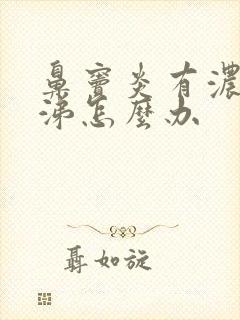 鼻窦炎有濃
涕怎麼办
聶如旋